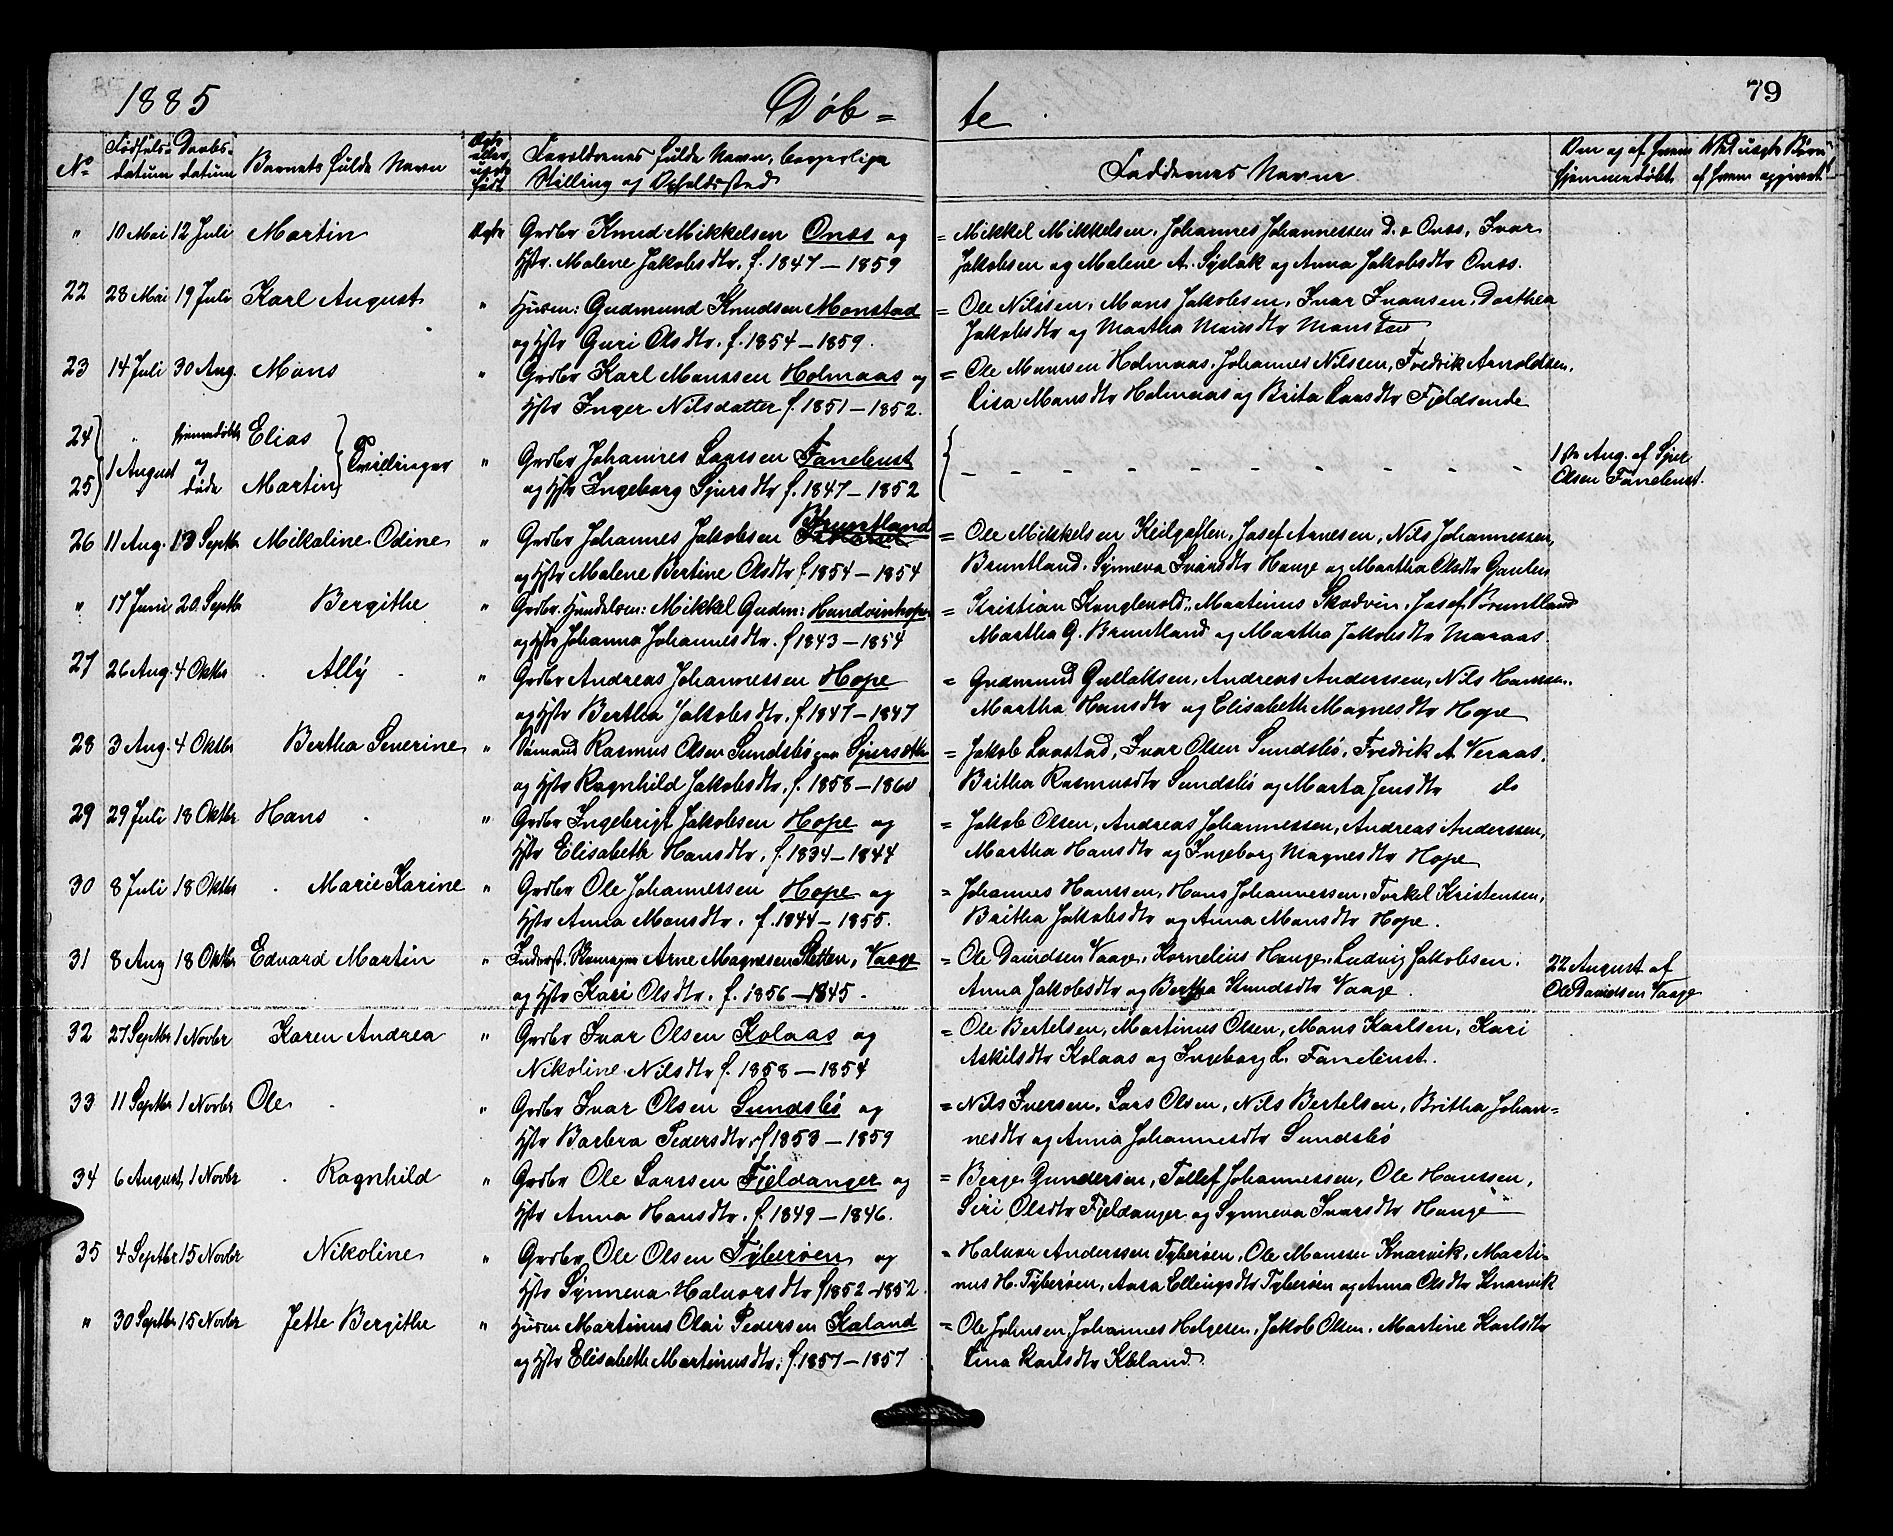 1885 Døb= te 79
No Fødsels-datum Daabs-datum Barnets fulde Navn Ægte eller uægte født Forældrenes fulde Navn, borgerlige Stilling og Opholdssted Faddernes Navne Om og af hvem hjemmedøbt
" 10 Mai 12 Juli Martin Ægte Grdbr Knud Mikkelsen Onæs og = Mikkel Mikkelsen, Johannes Johannessen D. o Onæs, Ivar
Hstr. Malene Jakobsdtr. f. 1847 – 1859 Jakobsen og Malene A. Syslak og Anna Jakobsdtr Onæs.
22 28 Mai 19 Juli Karl August " Husm: Gudmund Knudsen Monstad = Ole Nilssen, Mons Jakobsen, Ivar Ivarsen, Dorthea
og Hstr Guri Olsdtr. f. 1854 – 1859. Jakobsdtr og Martha Monsdtr Monstad
23 14 Juli 30 Aug. Mons " Grdbr Karl Monssen Holmaas og = Ole Monssen Holmaas, Johannes Nilssen, Fredrik Arnoldsen,
Hstr Inger Nilsdatter f. 1851 – 1852. Lisa Monsdtr Holmaas og Brita Larsdtr Fjeldsende
24 " hjemmedøbte Elias
25 1 August og døde Martin Tvillinger " Grdbr Johannes Larssen Fanebust – – – – – – 1ste Aug. af Sjur
og Hstr Ingeborg Sjursdtr f. 1847 – 1852 Olsen Fanebust.
26 11 Aug. 13 Septbr Mikaline Odine " Grdbr Johannes Jakobsen Bruntland = Ole Mikkelsen Keilegaflen, Josef Arnesen, Nils Johannessen,
og Hstr Malene Bertine Olsdtr f. 1854 – 1854 Bruntland, Synneva Ivarsdtr Hauge og Martha Olsdtr
" 17 Juni 20 Septbr Bergithe " Grdbr. Handelsm: Mikkel Gudm: Hundvinhope = Kristian Konglevold, Martinus Skodvin, Josef Bruntland
og Hstr Johanna Johannesdtr. f 1843 – 1854 Martha G. Bruntland og Martha Jakobsdtr Maraas.
27 26 Aug. 4 Oktbr Ally " Grdbr Andreas Johannessen Hope = Gudmund Gullaksen, Andreas Anderssen, Nils Hanssen,
og Hstr Bertha Jakobsdtr. f. 1847 – 1847 Martha Hansdtr og Elisabeth Magnesdtr Hope
28 3 Aug. 4 Oktbr Bertha Severine " Rasmus Olsen Sundsbø paa = Jakob Laastad, Ivar Olsen Sundsbø, Fredrik A. Veraas,
og Hstr Ragnhild Jakobsdtr. f. 1858 – 1860 Britha Rasmusdtr Sundsbø og Marta Jensdtr do
29 29 Juli 18 Oktbr Hans " Grdbr Ingebrigt Jakobsen Hope og = Jakob Olsen, Andreas Johannessen, Andreas Anderssen,
Hstr Elisabeth Hansdtr. f. 1834 – 1844 Martha Hansdtr og Ingeborg Magnesdtr Hope
30 8 Juli 18 Oktbr Marie Karine " Grdbr Ole Johannessen Hope og = Johannes Hanssen, Hans Johannessen, Torkel Kristensen,
Hstr Anna Monsdtr. f. 1844 – 1855. Britha Jakobsdtr og Anna Monsdtr Hope.
31 8 Aug 18 Oktbr Edvard Martin " Inderst. Skomager Arne Magnesen Sletten, Vaage = Ole Davidsen Vaage, Kornelius Hauge, Ludvig Jakobsen, 22 August af
og Hstr Kari Olsdtr. f. 1856 – 1845. Anna Jakobsdtr og Bertha Knudsdtr Vaage. Ole Davidsen Vaage
32 27 Septbr 1 Novbr Karen Andrea " Grdbr Ivar Olsen Kolaas og = Ole Bertelsen, Martinus Olsen, Mons Karlsen, Kari
Nikoline Nilsdtr f. 1858 – 1854 Askilsdtr Kolaas og Ingeborg L. Fanebust.
33 11 Septbr 1 Novbr Ole " Grdbr Ivar Olsen Sundsbø og = Nils Iversen, Lars Olsen, Nils Bertelsen, Britha Johan=
Hstr Barbra Pedersdtr f 1853 – 1859 nesdtr og Anna Johannesdtr Sundsbø
34 6 August 1 Novbr Ragnhild " Grdbr Ole Larssen Fjeldanger og = Berge Gundersen, Tollef Johannessen, Ole Hanssen,
Hstr Anna Hansdtr. f. 1849 – 1846. Siri Olsdtr Fjeldanger og Synneva Ivarsdtr Hauge
35 4 Septbr 15 Novbr Nikoline " Grdbr Ole Olsen Tyberøen og = Halvor Anderssen Tyberøen, Ole Monssen Knarvik, Marti=
Hstr Synneva Halvorsdtr f 1852 – 1852. nus H. Tyberøen, Aasa Ellingsdtr Tyberøen og Anna Olsdtr Knarvik
" 30 Septbr 15 Novbr Jette Bergithe " Husm Martinus Olai Pedersen Kaland = Ole Johnsen, Johannes Helgesen, Jakob Olsen, Martine Karlsdtr
og Hstr Elisabeth Martinusdtr; f. 1857 – 1857 Lina Karlsdtr Kaland.